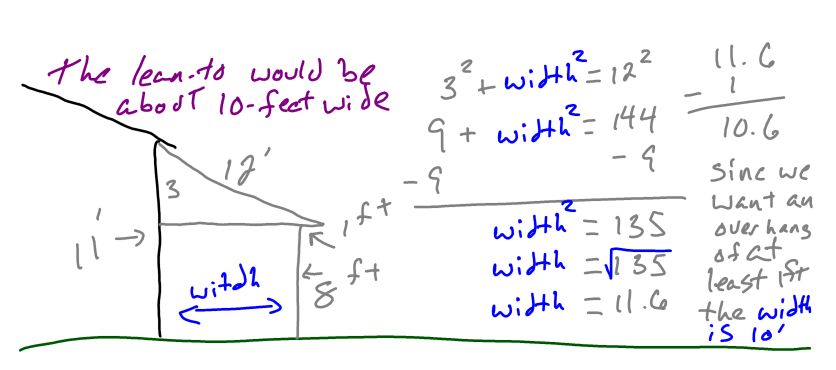 The lean-to would be
about 10-feet wide
12'
3
11'
1 ft
8 ft
witdh
3² + width² = 12²
9 + width² = 144
- 9 - 9
width² = 135
width = √135
width = 11.6
11.6
- 1
10.6
sinc we
want an
over hang
of at
least 1ft
the width
is 10'